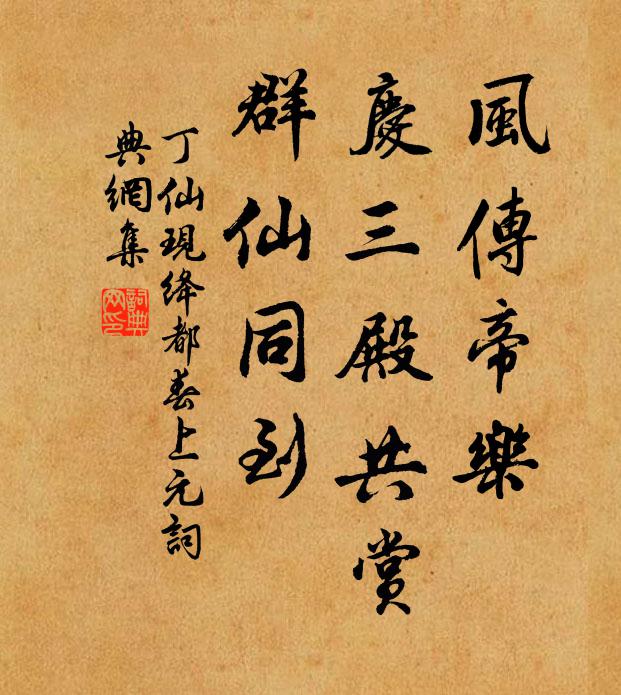 風傳帝樂
慶三殿共賞
群仙同到
丁仙現絳都春上元詞
典網集
詞典
网印